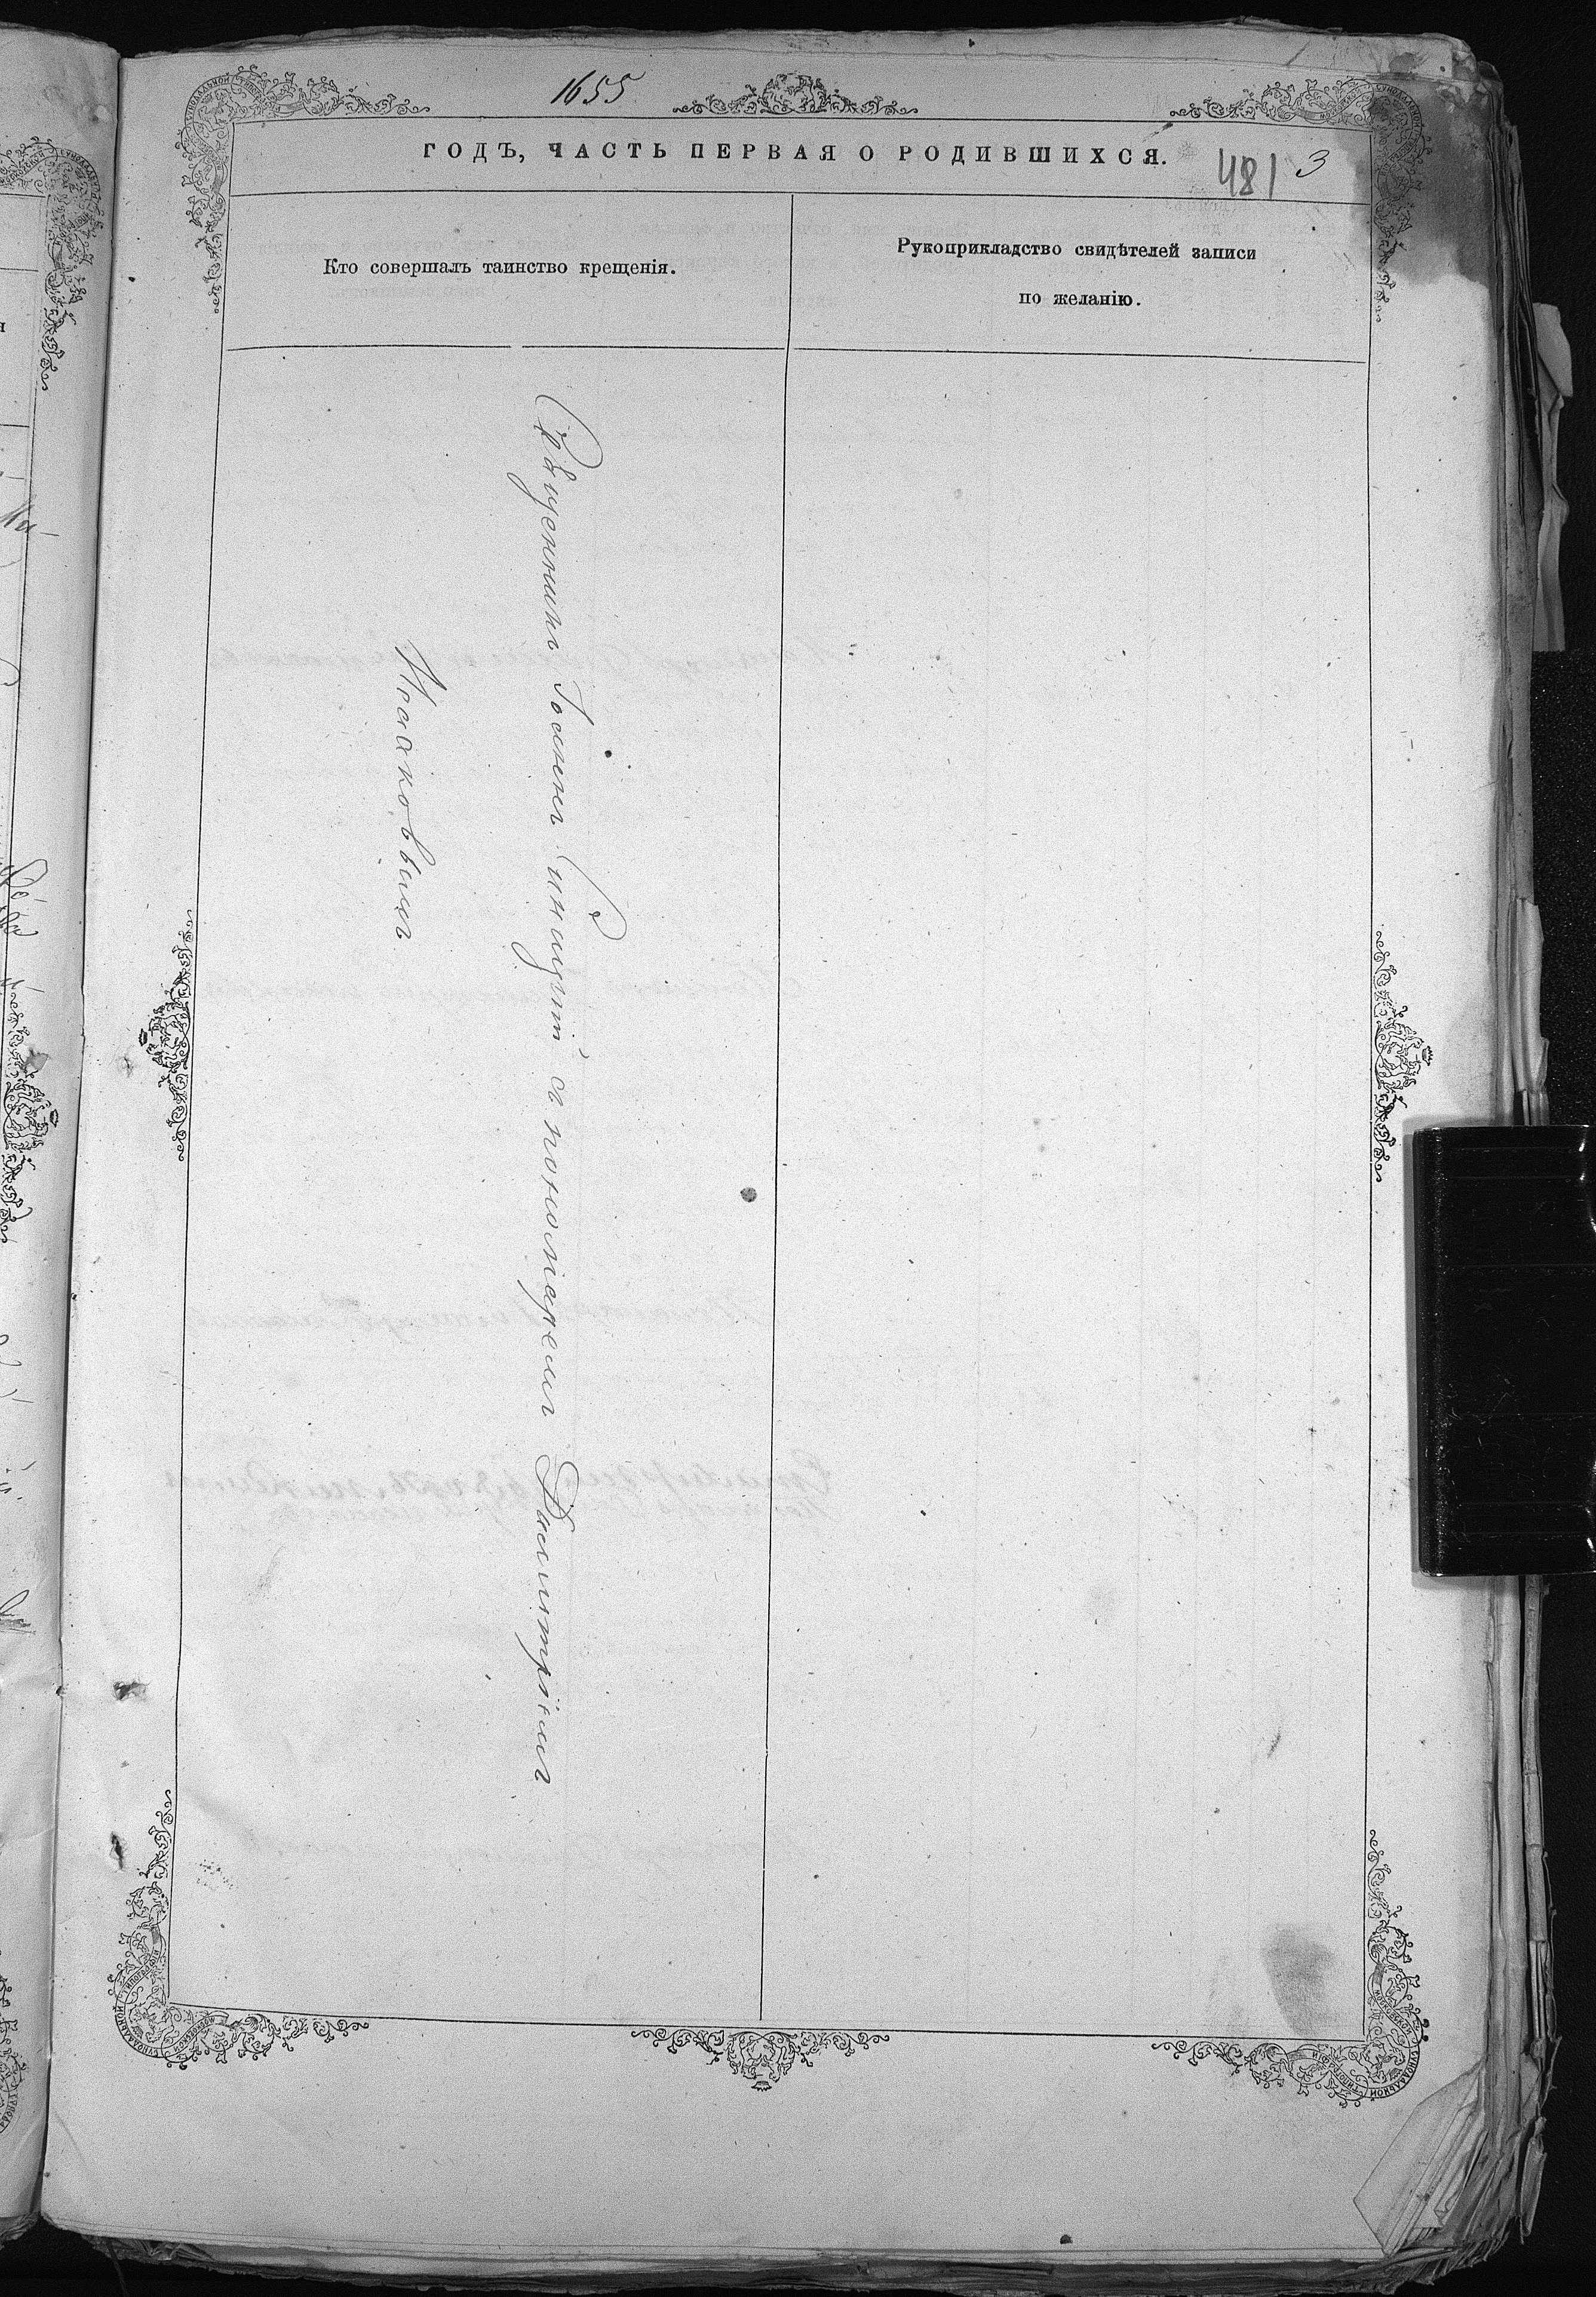 1655
ГОДЪ, ЧАСТЬ ПЕРВАЯ О РОДИВШИХСЯ.
481 3
Кто совершалъ таинство крещенія.
Рукоприкладство свидѣтелей записи
по желанію.
Священникъ Іоаннъ съ пономаремъ Димитріемъ
Исааковымъ